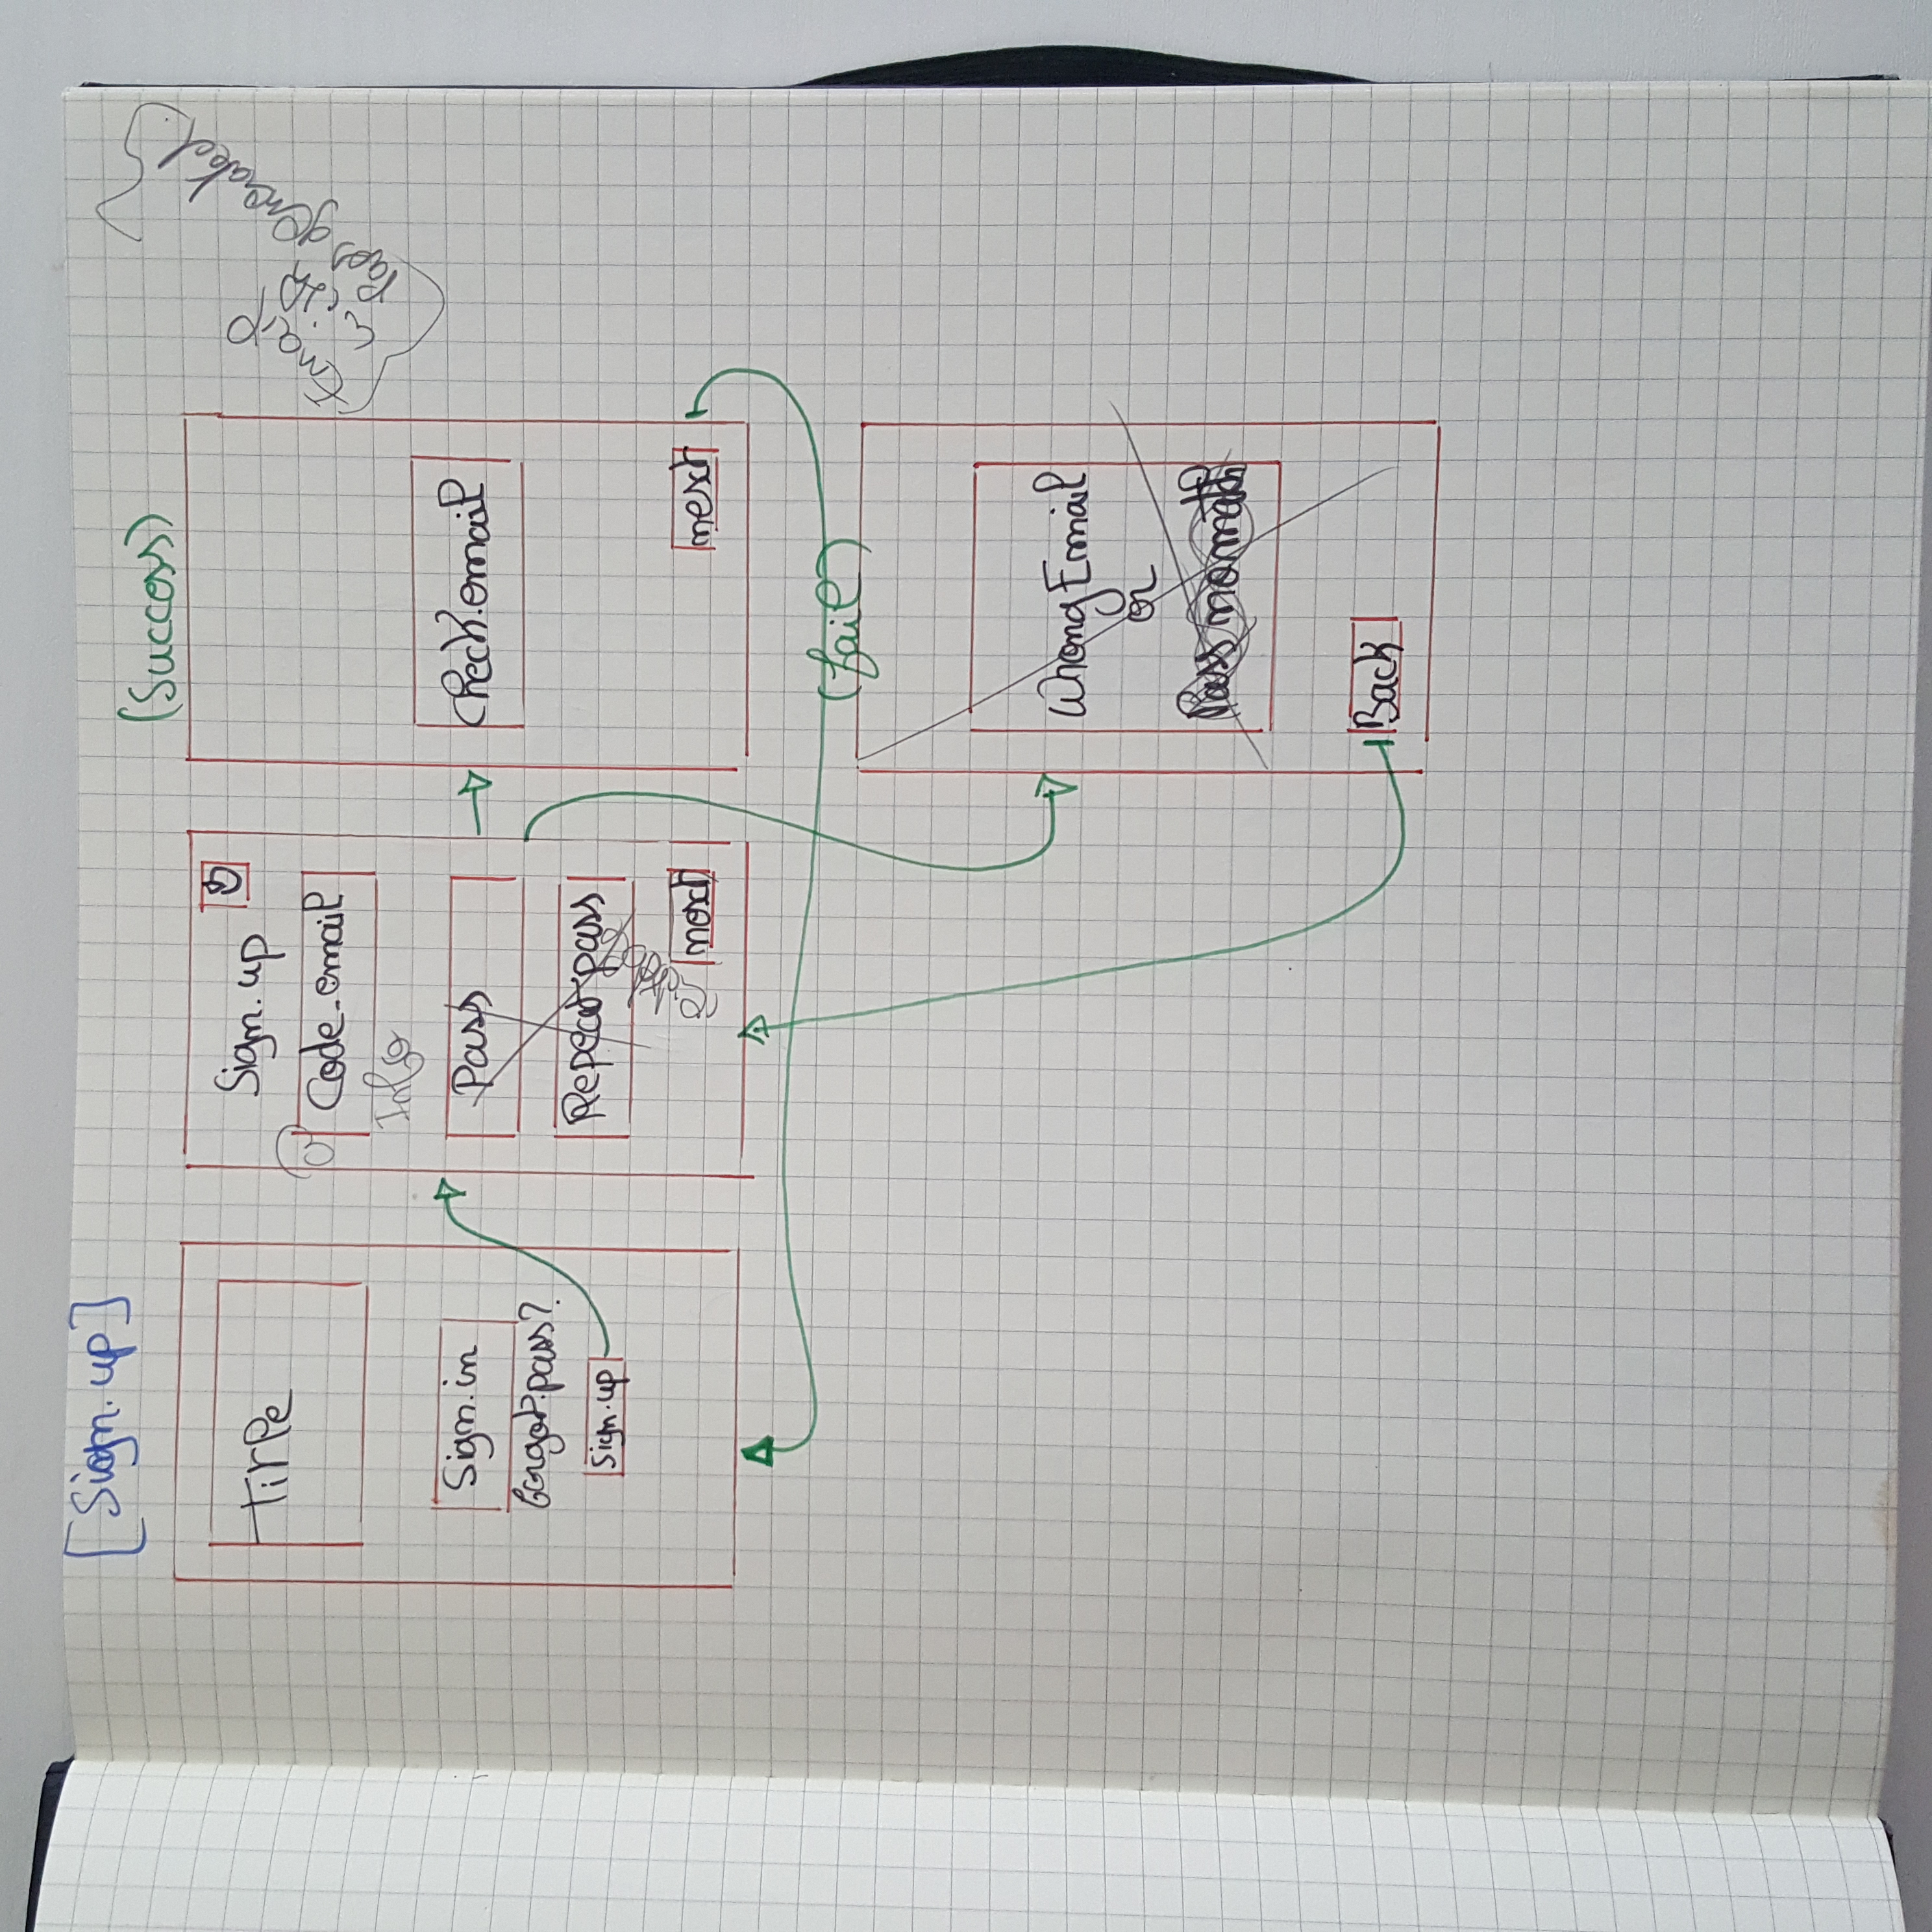 [Sign.up]
title
Sign.in
forgot.pass?
Sign.up
Sign.up
Code_email
Info
Pass
Repeat.pass
next
(Success)
Check.email
next
Email
with
Pass generated.
(fail)
Wrong Email
or
Pass no math
Back